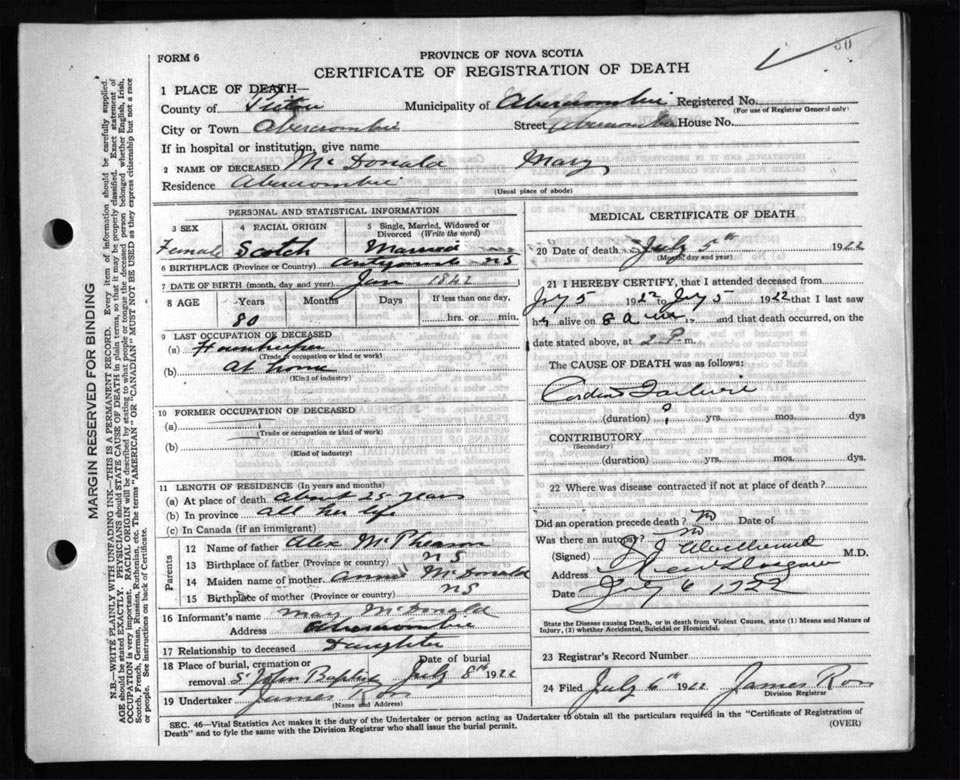 50
FORM 6
PROVINCE OF NOVA SCOTIA
CERTIFICATE OF REGISTRATION OF DEATH
1 PLACE OF DEATH—
County of Pictou Municipality of Abercrombie Registered No.
(For use of Registrar General only)
City or Town Abercrombie Street Abercrombie House No.
If in hospital or institution, give name
2 NAME OF DECEASED McDonald Mary
Residence Abercrombie
(Usual place of abode)
PERSONAL AND STATISTICAL INFORMATION
3 SEX 4 RACIAL ORIGIN 5 Single, Married, Widowed or Divorced (Write the word)
Female Scotch Married
6 BIRTHPLACE (Province or Country) Antigonish NS
7 DATE OF BIRTH (month, day and year) Jan 1842
8 AGE Years Months Days If less than one day,
80 hrs. or min.
9 LAST OCCUPATION OF DECEASED
(a) Housekeeper
(Trade or occupation or kind or work)
(b) At home
(Kind of industry)
10 FORMER OCCUPATION OF DECEASED
(a)
(Trade or occupation or kind of work)
(b)
(Kind of Industry)
11 LENGTH OF RESIDENCE (In years and months)
(a) At place of death about 25 years
(b) In province all her life
(c) In Canada (if an immigrant)
Parents
12 Name of father Alex McPhearson
13 Birthplace of father (Province or country) NS
14 Maiden name of mother Annie McDonald
15 Birthplace of mother (Province or country) NS
16 Informant's name Mary McDonald
Address Abercrombie
17 Relationship to deceased Daughter
18 Place of burial, cremation or Date of burial
removal St John Baptist July 8th 1922
19 Undertaker James Ross
(Name and Address)
MEDICAL CERTIFICATE OF DEATH
20 Date of death July 5th 1922
(Month, day and year)
21 I HEREBY CERTIFY, that I attended deceased from
July 5 1922 to July 5 1922 that I last saw
her alive on 8 a.m. and that death occurred, on the
date stated above, at 2 P. m.
The CAUSE OF DEATH was as follows:
Cardiac Failure
(duration) ? yrs. mos. dys
CONTRIBUTORY
(Secondary)
(duration) yrs. mos. dys.
22 Where was disease contracted if not at place of death?
Did an operation precede death? No Date of
Was there an autopsy? no
(Signed) M.D.
Address New Glasgow
Date July 6 1922
State the Disease causing Death, or in death from Violent Causes, state (1) Means and Nature of
Injury, (2) whether Accidental, Suicidal or Homicidal.
23 Registrar's Record Number
24 Filed July 6th 1922 James Ross
Division Registrar
SEC. 46—Vital Statistics Act makes it the duty of the Undertaker or person acting as Undertaker to obtain all the particulars required in the "Certificate of Registration of
Death" and to fyle the same with the Division Registrar who shall issue the burial permit. (OVER)
MARGIN RESERVED FOR BINDING
N.B.—WRITE PLAINLY WITH UNFADING INK—THIS IS A PERMANENT RECORD. Every item of information should be carefully supplied.
AGE should be stated EXACTLY. PHYSICIANS should STATE CAUSE OF DEATH in plain terms, so that it may be properly classified. Exact statement of
OCCUPATION is very important. RACIAL ORIGIN will be described by stating to what people or tongue the deceased person belonged whether English, Irish,
Scotch, French, German, Russian, Ruthenian, etc. The terms "AMERICAN" OR "CANADIAN" MUST NOT BE USED as they express citizenship but not a race
or people. See instructions on back of Certificate.